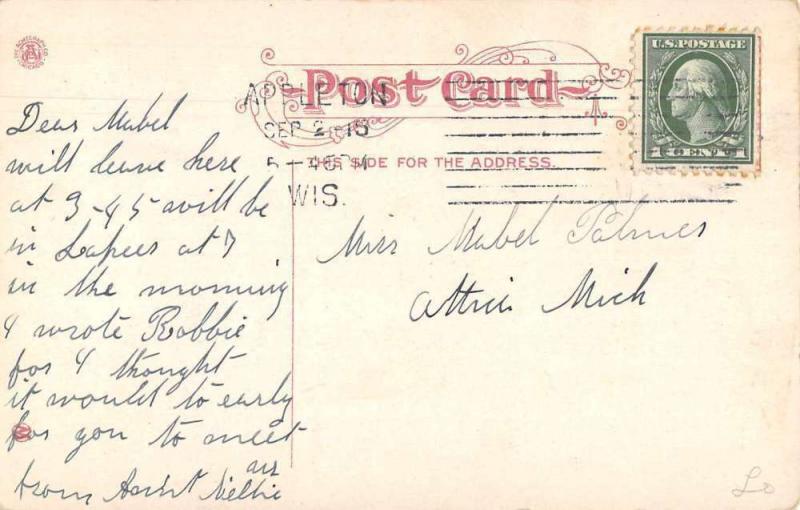 THE ACMEGRAPH CO.
CHICAGO
U.S. POSTAGE
Post Card
APPLETON
SEP 2 15
5-40PM
WIS.
THIS SIDE FOR THE ADDRESS.
Dear Mabel
will leave here
at 3-45 will be
in Lapeer at 7
in the morning
I wrote Robbie
for I thought
it would to early
for you to meet
us
from Aunt Nellie
Miss Mabel Palmer
Attica Mich
Lo